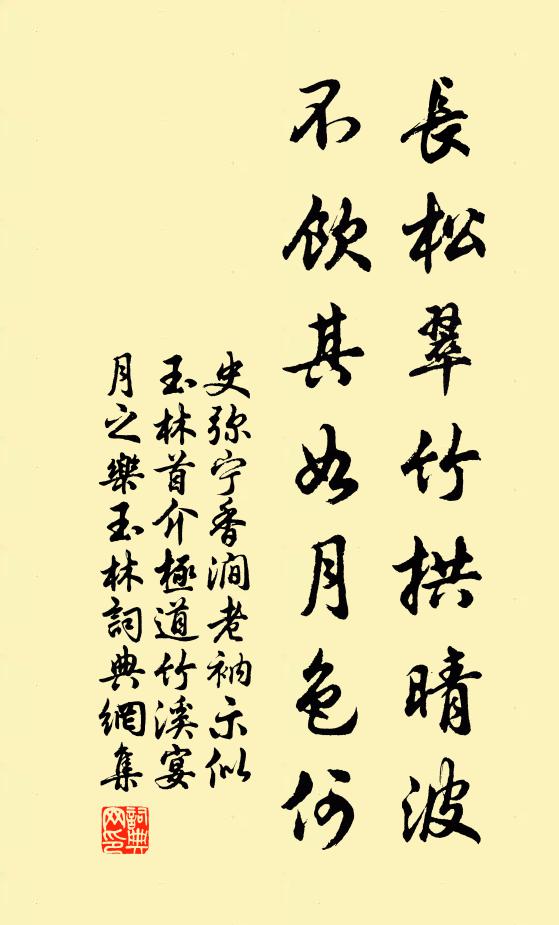 長松翠竹拱晴波
不飲其如月色何
史弥宁香澗老衲示似
玉林首介極道竹溪宴
月之樂玉林詞典網集
詞典
网印